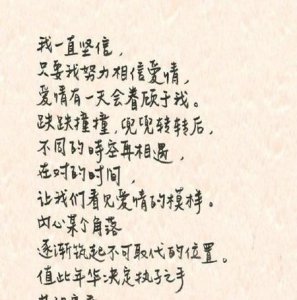 我一直坚信，
只要我努力相信爱情，
爱情有一天会眷顾于我。
跌跌撞撞，兜兜转转后，
不同的時空再相遇，
在对的时间，
让我们看见爱情的模样。
内心某个角落
逐渐筑起不可取代的位置。
值此年华决定执子之手